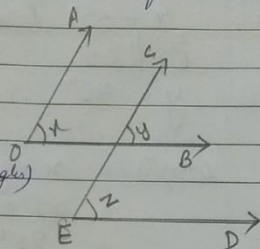 A
C
x
y
O
B
gles)
z
E
D